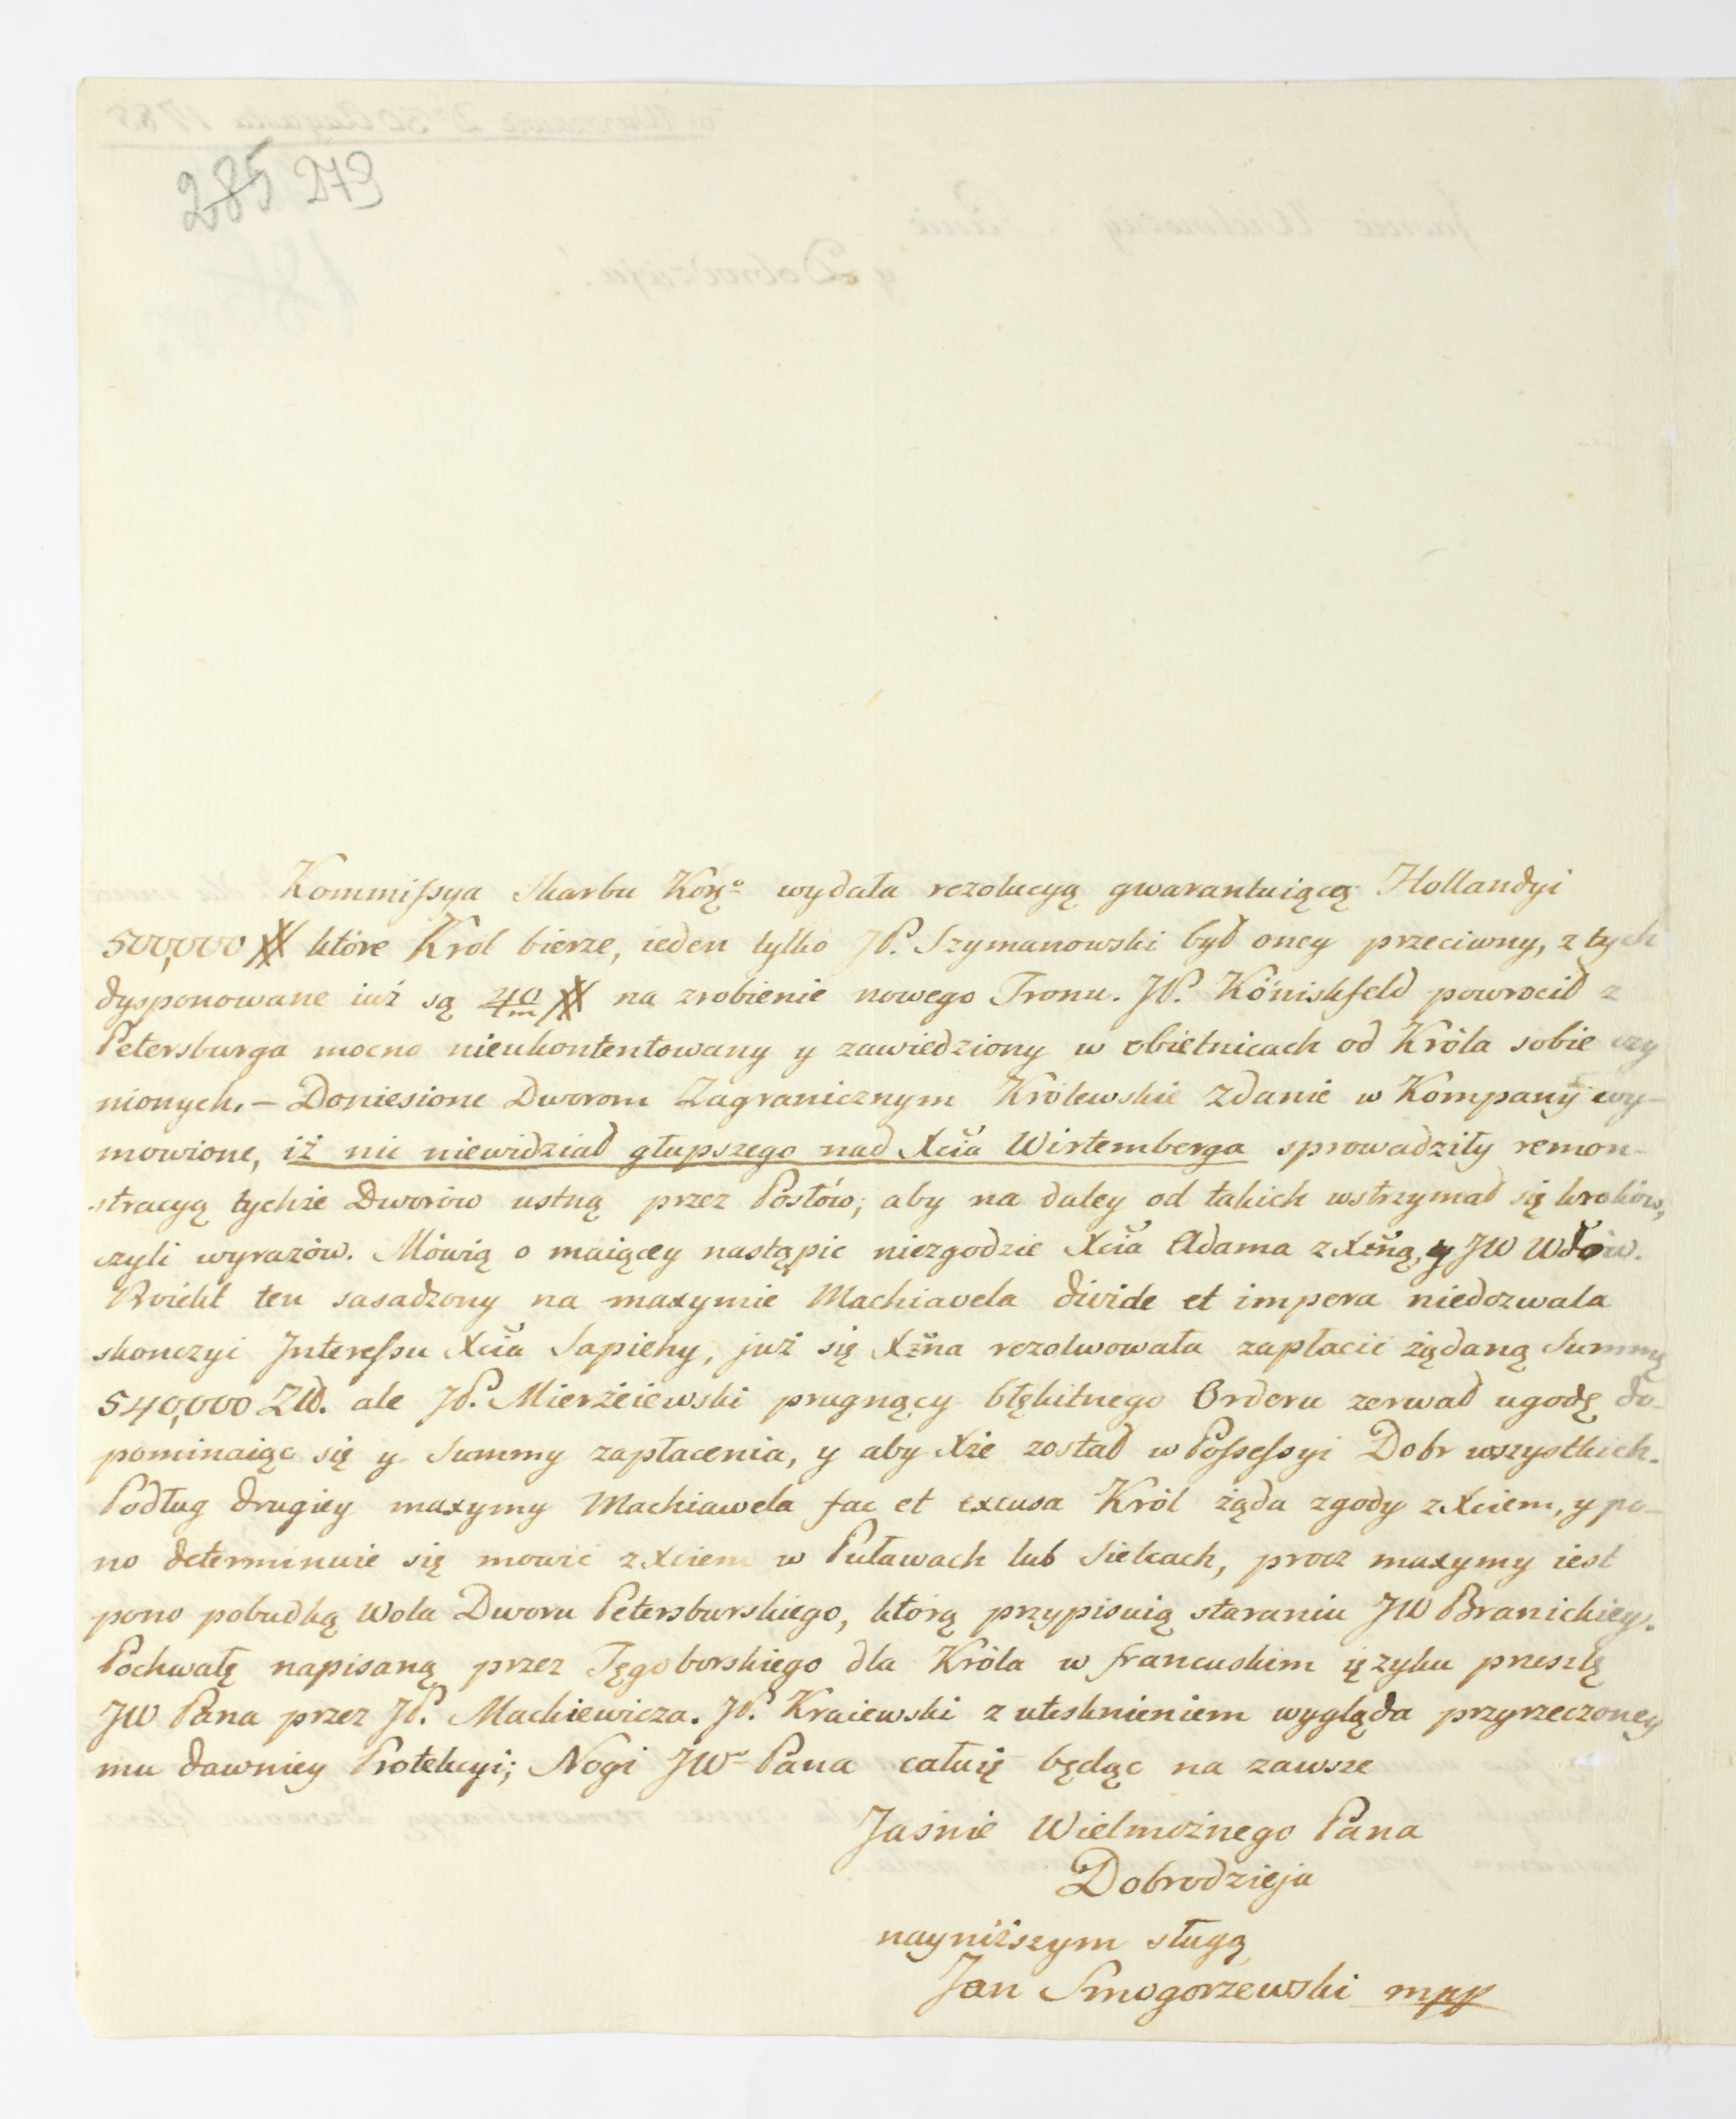 285 279
Kommissya Skarbu Kor: wydała rezolucyą gwarantuiącą Hollandyi
500,000 # które Krol bierze, ieden tylko JP. Szymanowski był oney przeciwny, z tych
dysponowane iuż są 40/m # na zrobienie nowego Tronu. JP. Köniskfeld powrocił z
Petersburga mocno nieukontentowany y zawiedziony w obietnicach od Króla sobie czy
nionych. – Doniesione Dworom Zagranicznym Królewskie zdanie w Kompanÿ wy-
mowione, iż nic niewidział głupszego nad Xcia Wirtemberga sprowadziły remon-
stracyą tychże Dworów ustną przez Posłów, aby na daley od takich wstrzymał się kroków,
czyli wyrazów. Mówią o maiącey nastąpic niezgodzie Xcia Adama z Xżną, y JW Wdow.
Proiekt ten sasadzony na maxymie Machiavela divide et impera niedozwala
skonczyć Interessu Xcia Sapiehy, już się Xżna rezolwowała zapłacić żądaną Summę
540,000 Zł. ale JP. Mierżeiewski pragnący błękitnego Orderu zerwał ugodę do-
pominaiąc się y Summy zapłacenia, y aby Xże został w Possessyi Dobr wszystkich.
Podług drugiey maxymy Machiawela fac et excusa Król żąda zgody z Xciem, y po-
no determinuie się mowić z Xciem w Puławach lub Sielcach, procz maxymy iest
pono pobudką Wola Dworu Petersburskiego, którą przypisuią staraniu JW Branickiey.
Pochwałę napisaną przez Tęgoborskiego dla Króla w francuskim ięzyku przeszlę
JW Pana przez JP. Mackiewicza. JP. Kraiewski z utesknieniem wygląda przyrzeczoney
mu dawniey Protekcyi; Nogi JWo Pana całuię będąc na zawsze
Jaśnie Wielmożnego Pana
Dobrodzieja
nayniższym sługą
Jan Smogorzewski mpp